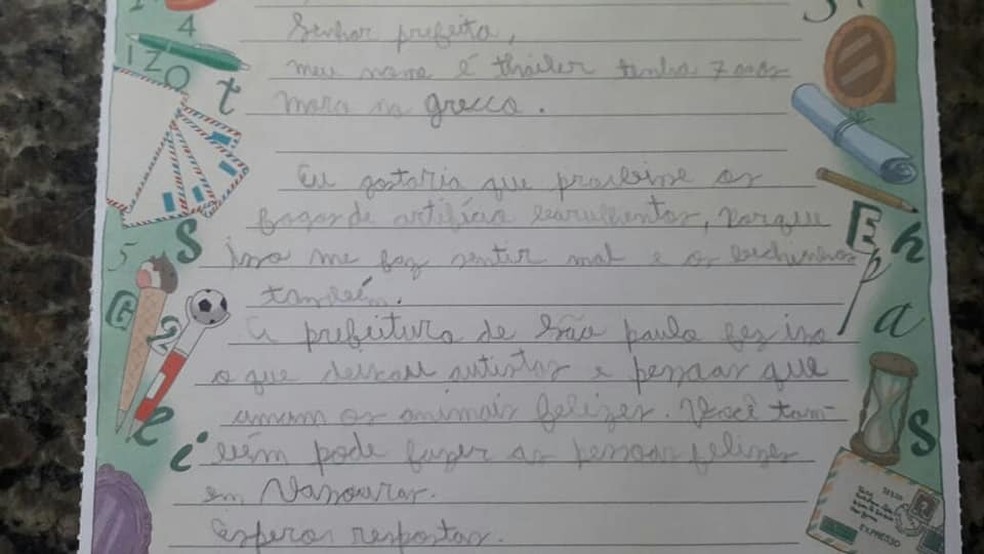 Senhor prefeito,
meu nome é thailer tenho 7 anos
moro na grecco.
Eu gostaria que proibisse os
fogos de artifício barulhentos, porque
isso me faz sentir mal e os bichinhos
também.
A prefeitura de São paulo fez isso
o que deixou autistas e pessoas que
amam os animais felizes. Você tam-
bém pode fazer as pessoas felizes
em Vassouras.
Espero respostas.